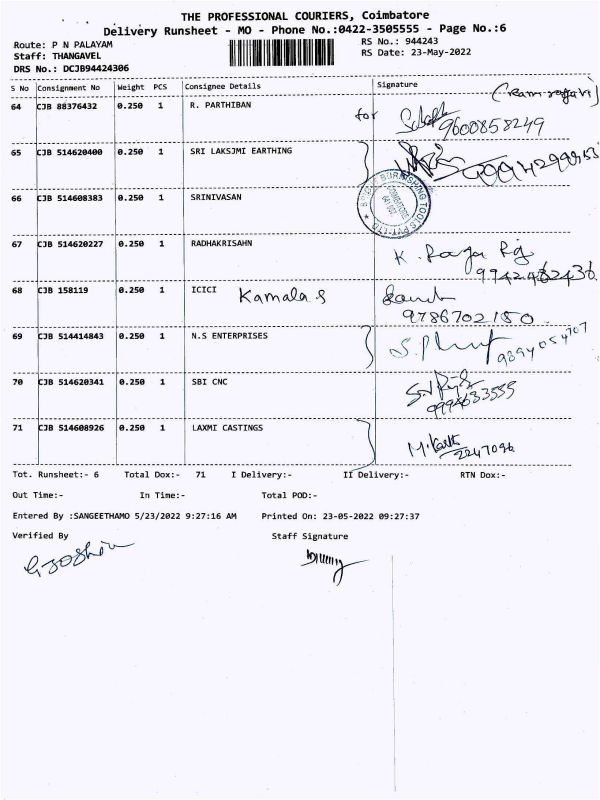 THE PROFESSIONAL COURIERS, Coimbatore
Delivery Runsheet - MO - Phone No.:0422-3505555 - Page No.:6
Route: P N PALAYAM
Staff: THANGAVEL
DRS No.: DCJB94424306
RS No.: 944243
RS Date: 23-May-2022
S No Consignment No Weight PCS Consignee Details Signature
64 CJB 88376432 0.250 1 R. PARTHIBAN for
9600858249
65 CJB 514620400 0.250 1 SRI LAKSJMI EARTHING
66 CJB 514608383 0.250 1 SRINIVASAN
67 CJB 514620227 0.250 1 RADHAKRISAHN
K. Raja Rj
68 CJB 158119 0.250 1 ICICI Kamala S
9786702180
69 CJB 514414843 0.250 1 N.S ENTERPRISES
9894054707
70 CJB 514620341 0.250 1 SBI CNC
9994633555
71 CJB 514608926 0.250 1 LAXMI CASTINGS
2247096
Tot. Runsheet:- 6 Total Dox:- 71 I Delivery:- II Delivery:- RTN Dox:-
Out Time:- In Time:- Total POD:-
Entered By :SANGEETHAMO 5/23/2022 9:27:16 AM Printed On: 23-05-2022 09:27:37
Verified By Staff Signature